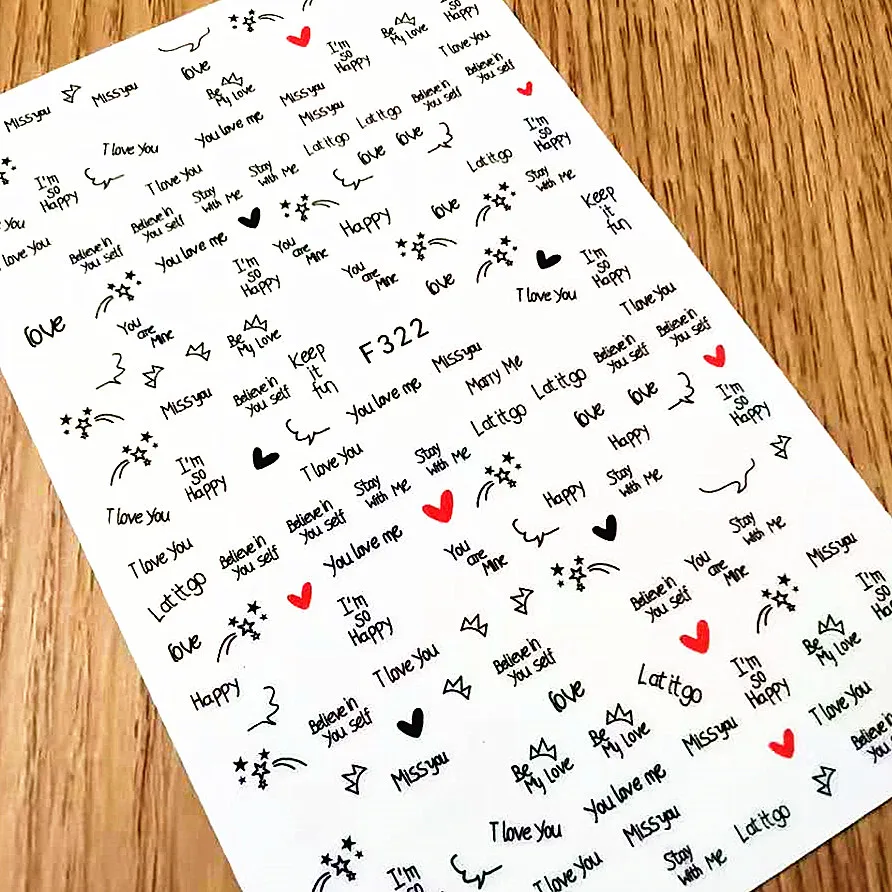 I'm
So
Happy
Be
My Love
I love You
love
I'm
So
Happy
Be
My Love
Miss you
Miss you
Miss you
Believe in
You self
Believe in
You self
You love me
Miss you
Lat it go
Lat it go
I love You
love
love
I'm
So
Happy
I'm
So
Happy
I love You
Stay
with Me
Stay
with Me
Lat it go
Stay
with Me
You
I love You
Believe in
You self
Believe in
You self
You love me
Happy
love
Keep
it
fun
I'm
So
Happy
You
are
Mine
You
are
Mine
love
I'm
So
Happy
I love You
I love You
love
You
are
Mine
Be
My Love
Keep
it
fun
F322
Miss you
Believe in
You self
Believe in
You self
Miss you
Believe in
You self
You love me
Marry Me
Lat it go
Lat it go
love
love
I'm
So
Happy
I'm
So
Happy
I love You
Stay
with Me
Stay
with Me
Happy
Stay
with Me
Happy
I love You
I love You
Believe in
You self
Believe in
You self
You love me
You
are
Mine
Stay
with Me
You
are
Mine
Miss you
Lat it go
I'm
So
Happy
Believe in
You self
love
I love You
Believe in
You self
Be
My Love
I'm
So
Happy
Lat it go
Happy
Believe in
You self
love
I love You
Miss you
Be
My Love
Be
My Love
Miss you
Believe in
You love me
I love You
Miss you
Lat it go
I'm
So
I love You
Stay
with Me